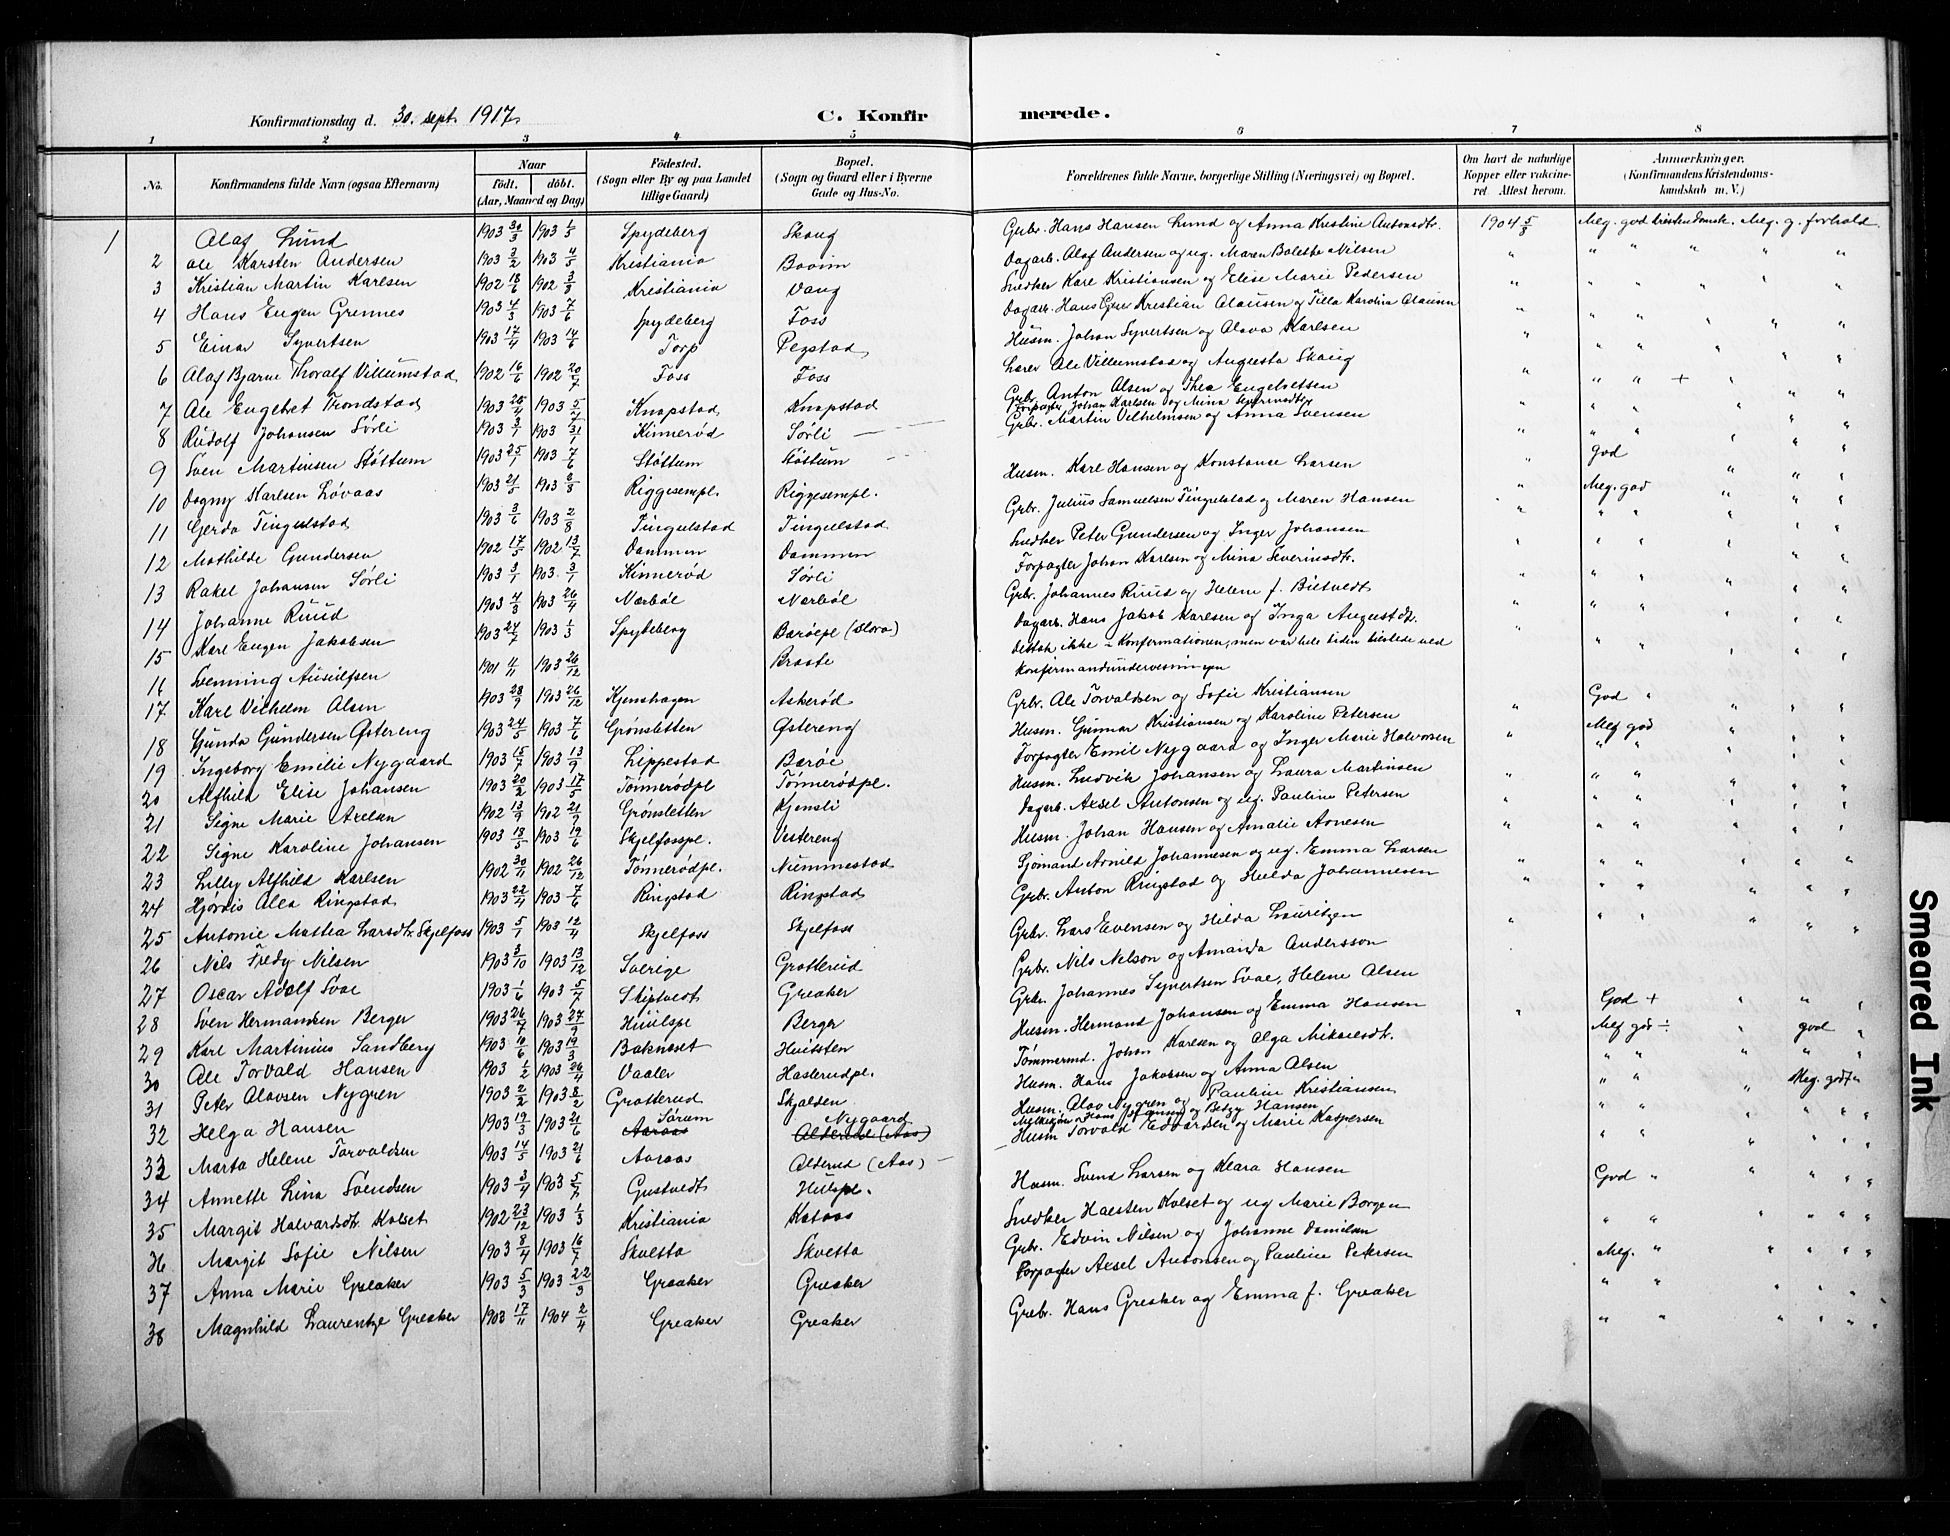 Konfirmationsdag d. 30. sept. 1917. C. Konfirmerede.
1 2 3 4 5 6 7 8
No. Konfirmandens fulde Navn (ogsaa Efternavn) Naar født, døbt. (Aar, Maaned og Dag) Fødested. (Sogn eller By og paa Landet tillige Gaard) Bopæl. (Sogn og Gaard eller i Byerne Gade og Hus-No. Forældrenes fulde Navne, borgerlige Stilling (Næringsvei) og Bopæl. Om havt de naturlige Kopper eller vakcineret. Attest herom. Anmerkninger. (Konfirmandens Kristendomskundskab m. V.)
1 Olaf Lund 1903 30/3 1903 1/5 Spydeberg Skoug Grbr. Hans Hansen Lund og Anna Kristine Antonsdtr. 1904 5/8 Meg. god kristendomsk. Meg. g. forhold
2 Ole Karsten Andersen 1903 3/2 1903 4/5 Kristiania Bovim Dagarb. Olaf Andersen og ug. Maren Bolette Nilsen " " " " " "
3 Kristian Martin Karlsen 1902 18/6 1902 3/8 Kristiania Vaug Snedker Karl Kristiansen og Elise Marie Pedersen " " " " " "
4 Hans Eugen Grennes 1903 4/3 1903 7/6 Spydeberg Foss Dagarb. Hans Kristian Olausen og Tilla Karolina Olausen " " " " " "
5 Einar Syvertsen 1903 17/4 1903 14/6 Torp Pegstad Husm. Johan Syvertsen og Olava Karlsen " " " " " "
6 Olaf Bjarne Thoralf Villumstad 1902 16/6 1902 20/7 Foss Foss Lærer Ole Villumstad og Augusta Skoug " " " + " "
7 Ole Engebret Trondstad 1903 25/4 1903 5/7 Knapstad Knapstad Grb. Anton Olsen og Thea Engebretsen
8 Rudolf Johansen Sørli 1903 3/1 1903 31/1 Kinnerød Sørli Forpagter Johan Karlsen og Mina Severinsdtr
9 Sven Martinsen Støttum 1903 25/1 1903 7/6 Støttum Støttum Grbr. Martin Vilhelmsen og Anna Svensen
10 Dagny Karlsen Løvaas 1903 21/5 1903 2/8 Riggesempl. Riggesempl. Husm. Karl Hansen og Konstanse Larsen " God
11 Gerda Tingulstad 1903 3/6 1903 2/8 Tingulstad Tingulstad Grbr. Julius Samuelsen Tingulstad og Maren Hansen " Meg. god
12 Mathilde Gundersen 1902 17/5 1902 13/7 Dammen Dammen Snedker Peter Gundersen og Inger Johansen
13 Rakel Johansen Sørli 1903 3/1 1903 3/1 Kinnerød Sørli Forpagter Johan Karlsen og Mina Severinsdtr.
14 Johanne Ruud 1903 4/3 1903 26/4 Nærbøl Nærbøl Grb. Johannes Ruud og Helene f. Bietvedt
15 Karl Eugen Jakobsen 1903 27/7 1903 1/3 Spydeberg Barøepl (Hora) Dagarb. Hans Jakob Karlsen og Inga Augustdtr.
16 Svenning Ausulfsen 1901 4/11 1903 26/12 Braate Deltok ikke i Konfirmationen, men var hele tiden tilstede ved
konfirmandundervisningen
17 Karl Vilhelm Olsen 1903 28/9 1903 26/12 Kjenshagen Askerød Grbr. Ole Torvaldsen og Sofie Kristiansen God "
18 Gunda Gundersen Østereng 1903 24/5 1903 7/6 Grønsletten Østereng Husm. Gunnar Kristiansen og Karoline Petersen " Meg god
19 Ingeborg Emilie Nygaard 1903 15/7 1903 13/9 Lippestad Barøe Forpagter Emil Nygaard og Inger Marie Halvorsen
20 Alfhild Elise Johansen 1903 20/2 1903 17/5 Tønnerødpl Tønnerødpl. Husm. Ludvik Johansen og Laura Martinsen
21 Signe Marie Axelsen 1902 13/9 1902 21/9 Grønsletten Kjensli Dagarb. Axsel Antonsen og ug. Pauline Petersen
22 Signe Karoline Johansen 1903 18/5 1903 19/6 Skjelfosspl. Vestereng Husm. Johan Hansen og Amalie Arnesen
23 Lilly Alfhild Karlsen 1902 30/11 1902 26/12 Tønnerødpl. Nummestad Sjømand Arnild Johannesen og ug. Emma Larsen
24 Hjørdis Olea Ringstad 1903 22/4 1903 7/6 Ringstad Ringstad Grbr. Anton Ringstad og Hulda Johannesen
25 Antonie Mathea Larsdtr. Skjelfoss 1903 5/1 1903 12/4 Skjelfoss Skjelfoss Grbr. Lars Evensen og Hilda Lauritzen
26 Nils Fredy Nilsen 1903 3/10 1903 13/12 Sverige Grotterud Grbr. Nils Nelson og Amanda Andersson
27 Oscar Adolf Svae 1903 1/6 1903 5/7 Skiptvedt Greaker Grbr. Johannes Syvertsen Svae, Helene Olsen
28 Sven Hermansen Berger 1903 26/7 1903 27/9 Huulspl Berger Husm. Hermand Johansen og Emma Hansen God +
29 Karl Martinius Sandberg 1903 10/6 1903 19/3 Baknæset Huitsten Tømmermd. Johan Karlsen og Olga Mikaelsdtr. Meg god ÷ god
30 Ole Torvald Hansen 1903 1/2 1903 26/4 Vaaler Haslerudpl. Husm. Hans Jakobsen og Anna Olsen
31 Peter Olavsen Nygren 1903 2/2 1903 8/2 Grotterud Skjolden Husm. Olav Nygren og Pauline Kristiansen Meg. godt
32 Helga Hansen 1903 19/3 1903 21/6 Sørum Aaraas Nygaard Alderud (Aas) Hans og Betzy Hansen
33 Marta Helene Torvaldsen 1903 14/5 1903 21/6 Aaraas Alderud (Aas) Husm Torvald Edvardsen og Marie Kaspersen
34 Annette Lina Svendsen 1903 3/4 1903 5/7 Gustvedt Hulspl. Husm. Svend Larsen og Klara Hansen God "
35 Margit Halvardsdtr. Kolset 1902 23/12 1903 1/3 Kristiania Kataas Snedker Halsten Kolset og ug Marie Borgen
36 Margit Sofie Nilsen 1903 8/4 1903 16/7 Skvetta Skvetta Grbr. Edvin Nilsen og Johanne Danielsen Meg. "
37 Anna Marie Greaker 1903 5/3 1903 22/3 Greaker Greaker Forpagter Axsel Antonsen og Pauline Petersen
38 Magnhild Laurentze Greaker 1903 17/11 1904 2/4 Greaker Greaker Grbr. Hans Greaker og Emma f. Greaker
Smeared Ink